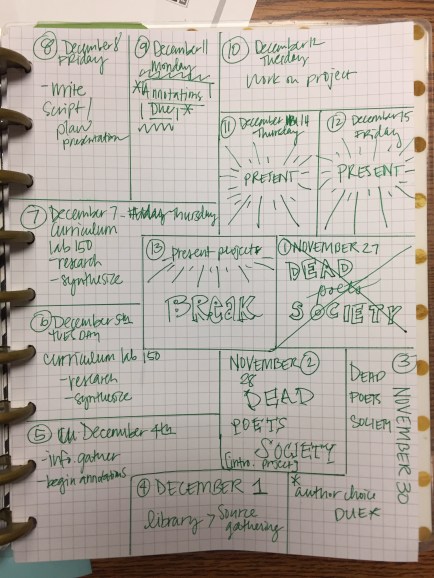 ⑧ December 8
FRIDAY
- Write
Script /
plan
presentation
⑨ December 11
Monday
*Annotations
Due! *
⑩ December 12
Tuesday
Work on project
⑪ December 14
Thursday
PRESENT
⑫ December 15
Friday
PRESENT
⑦ December 7 - Thursday
curriculum
lab 150
- research
- synthesize
⑬ present projects
BREAK
① NOVEMBER 27
DEAD
poets
SOCIETY
⑥ December 5th
TUESDAY
curriculum lab 150
- research
- synthesize
NOVEMBER ②
28
DEAD
POETS
SOCIETY
[intro. project]
③
NOVEMBER 30
DEAD
POETS
SOCIETY
⑤ December 4th
- info. gather
- begin annotations
④ DECEMBER 1
library > Source
gathering
* author choice
DUE *